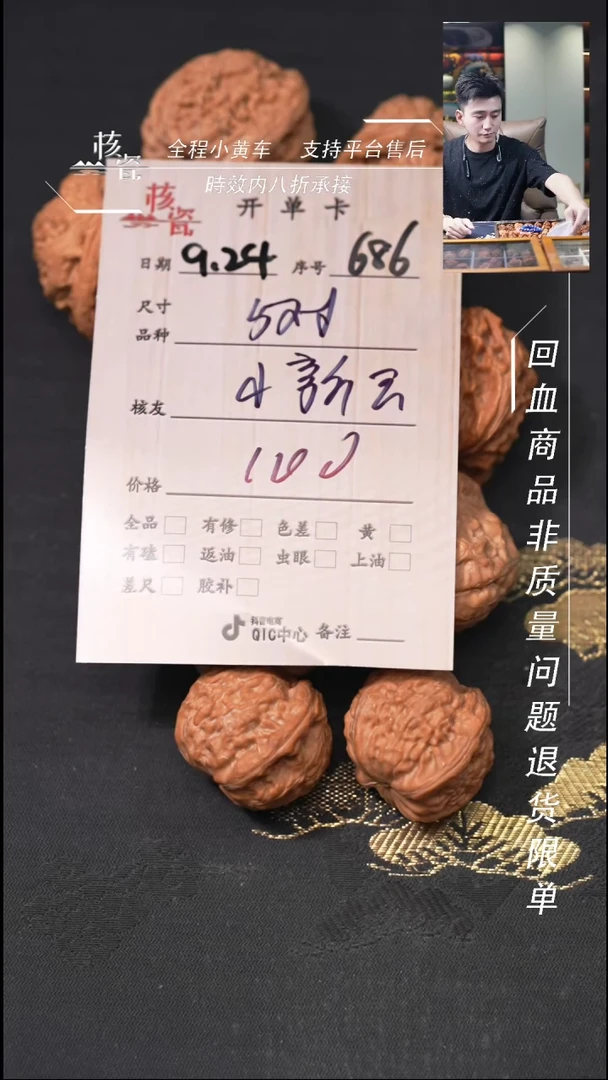 核瓷
全程小黄车 支持平台售后
時效内八折承接
核瓷
开单卡
日期 9.24 序号 686
尺寸
品种 5对
核友
价格 100
全品 有修 色差 黄
有磕 返油 虫眼 上油
差尺 胶补
抖音电商
QIC中心 备注
回血商品非质量问题退货限单